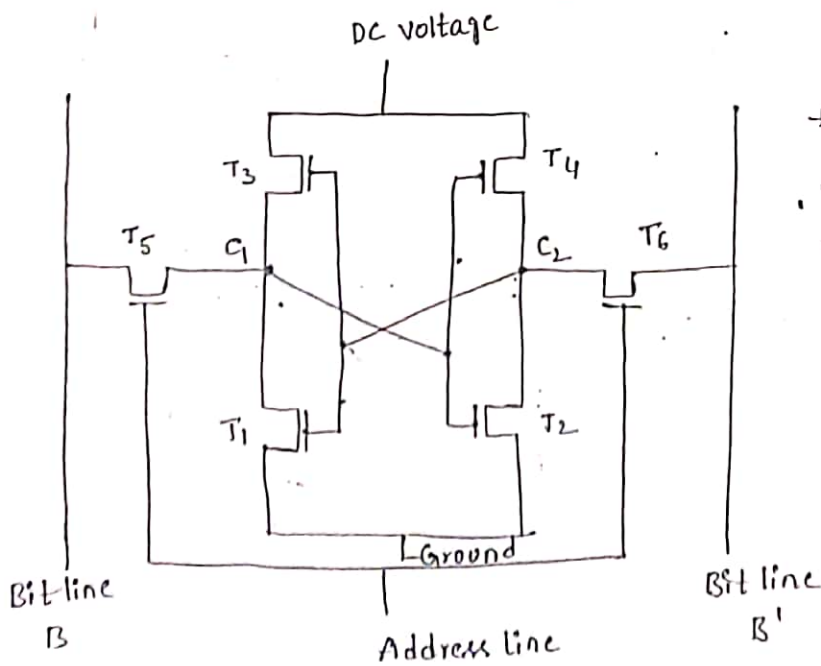 DC voltage
T3
T4
T5
C1
C2
T6
T1
T2
Ground
Bit line
B
Address line
Bit line
B'